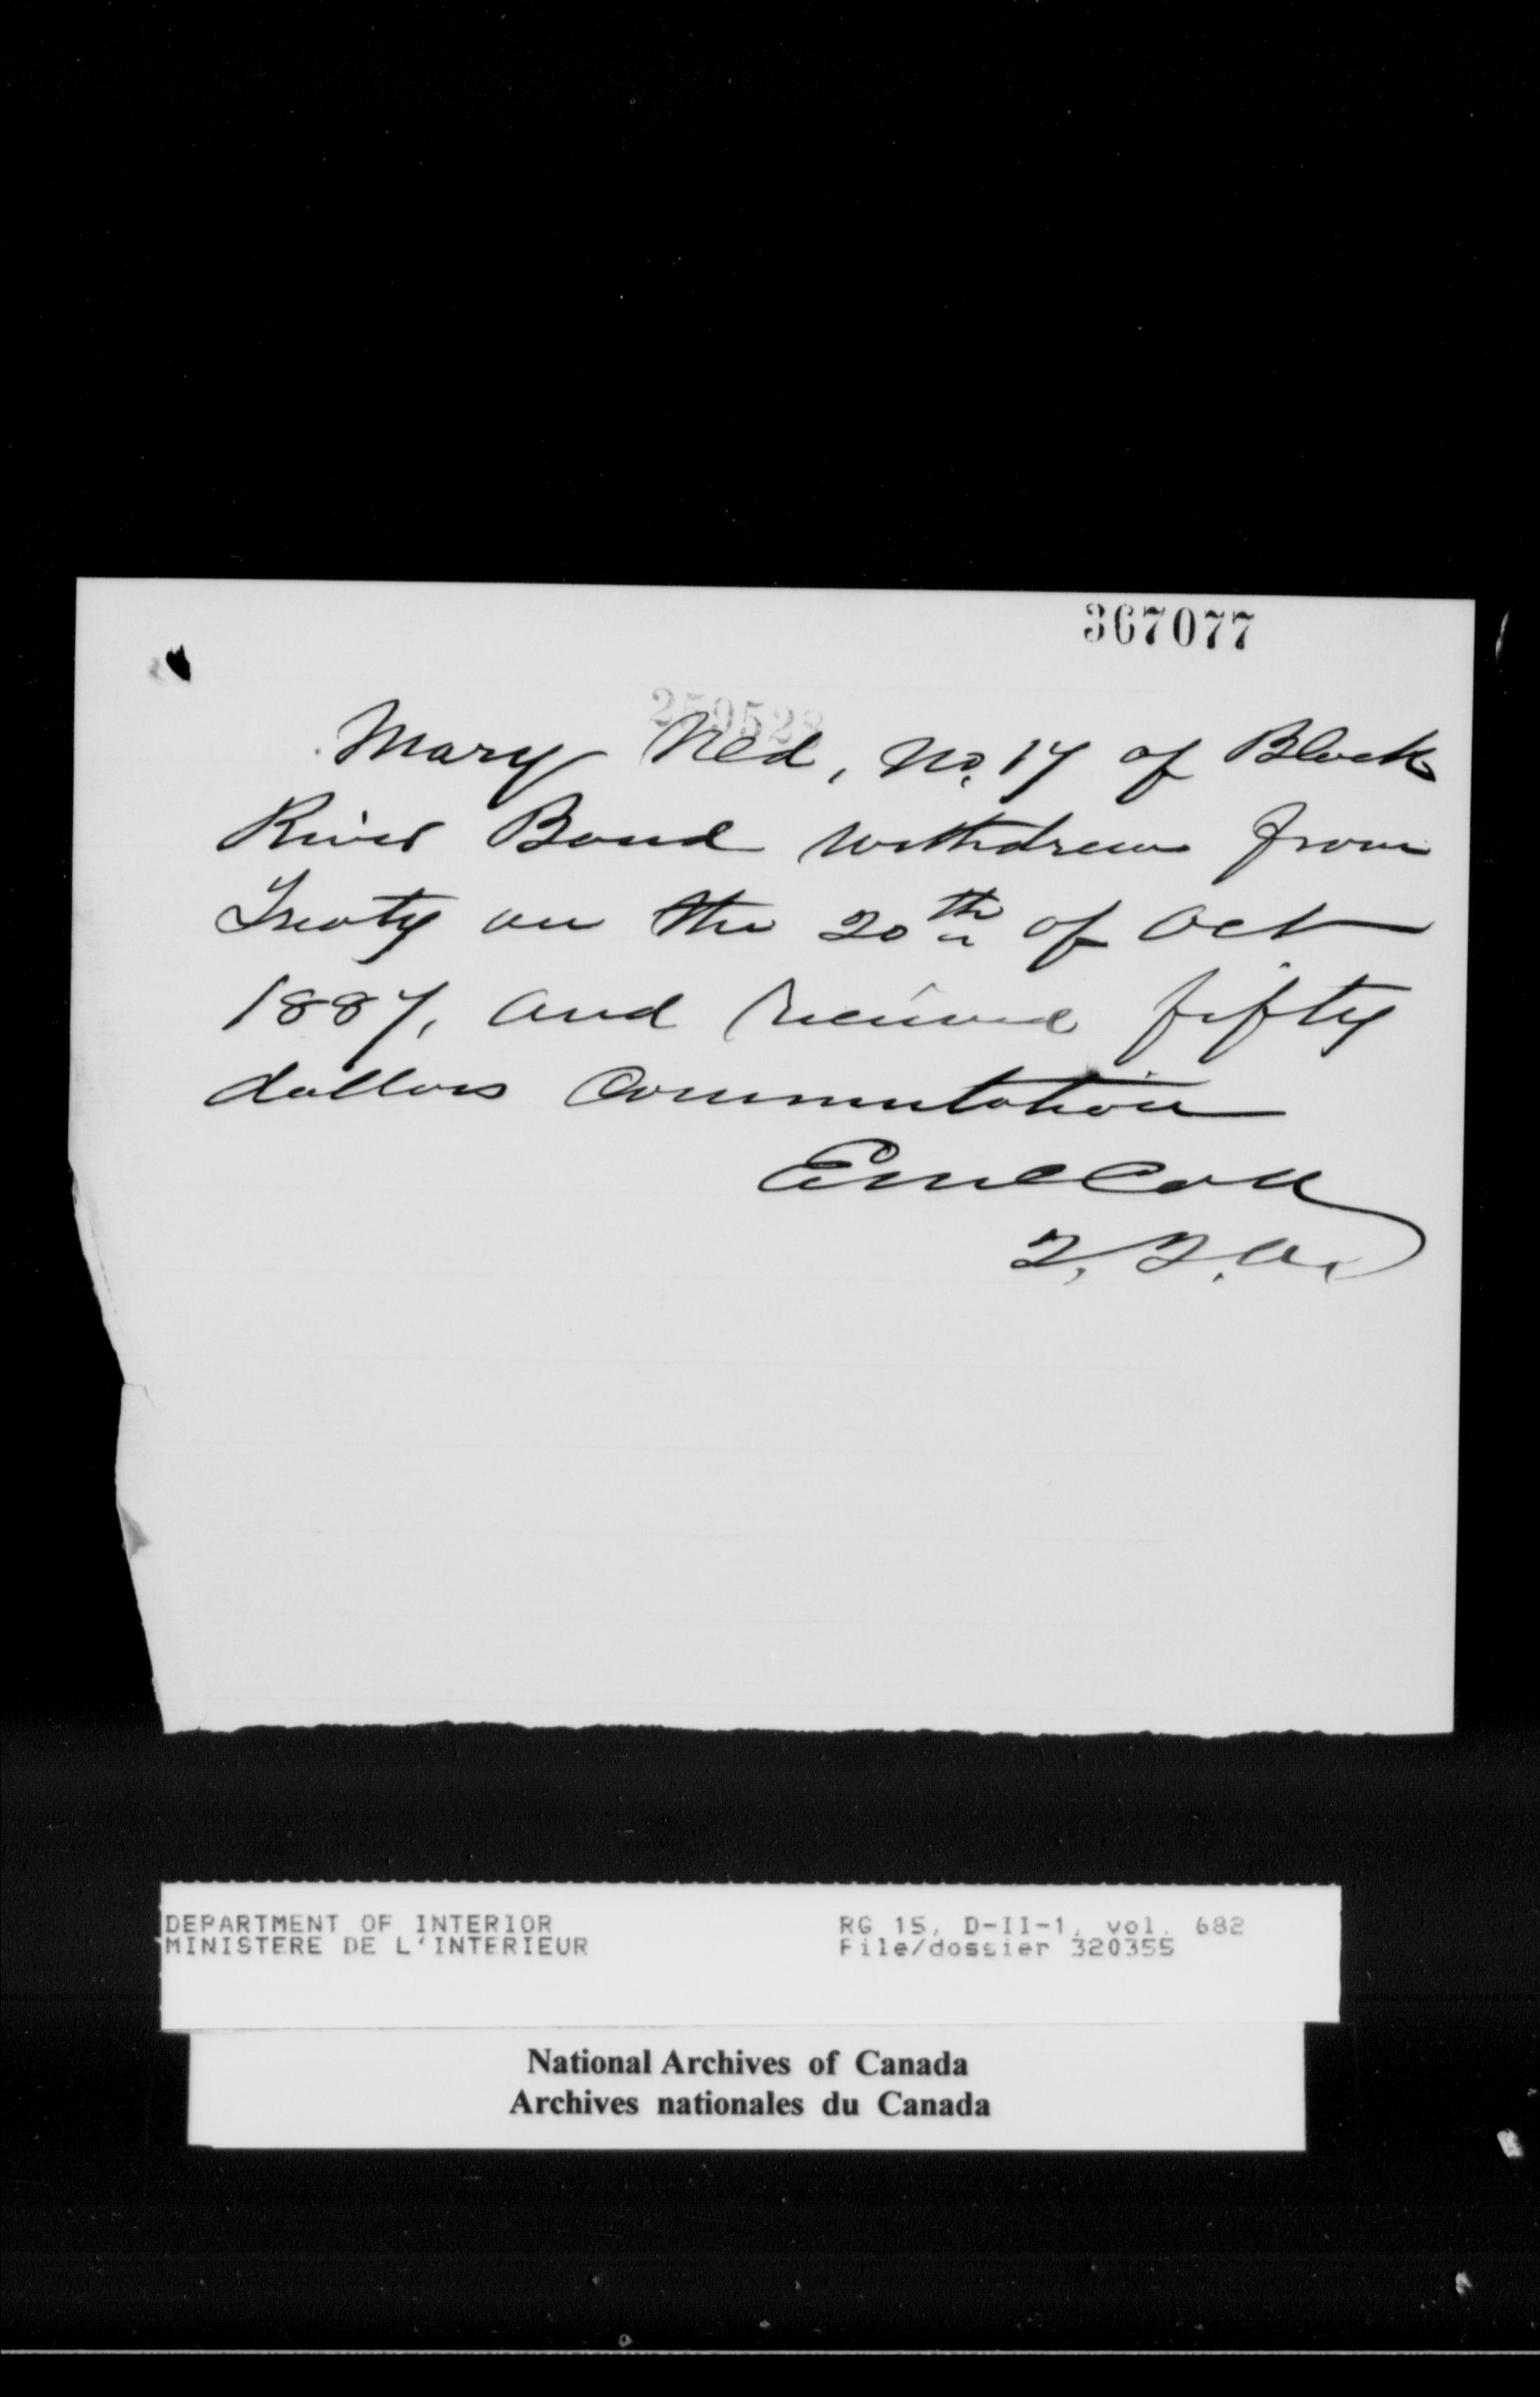 367077
259528
Mary Ned, No. 17 of Black
River Band withdrew from
Treaty on the 20th of Oct
1887, and received fifty
dollars Commutation
DEPARTMENT OF INTERIOR
MINISTERE DE L'INTERIEUR
RG 15, D-II-1, vol. 682
File/dossier 320355
National Archives of Canada
Archives nationales du Canada